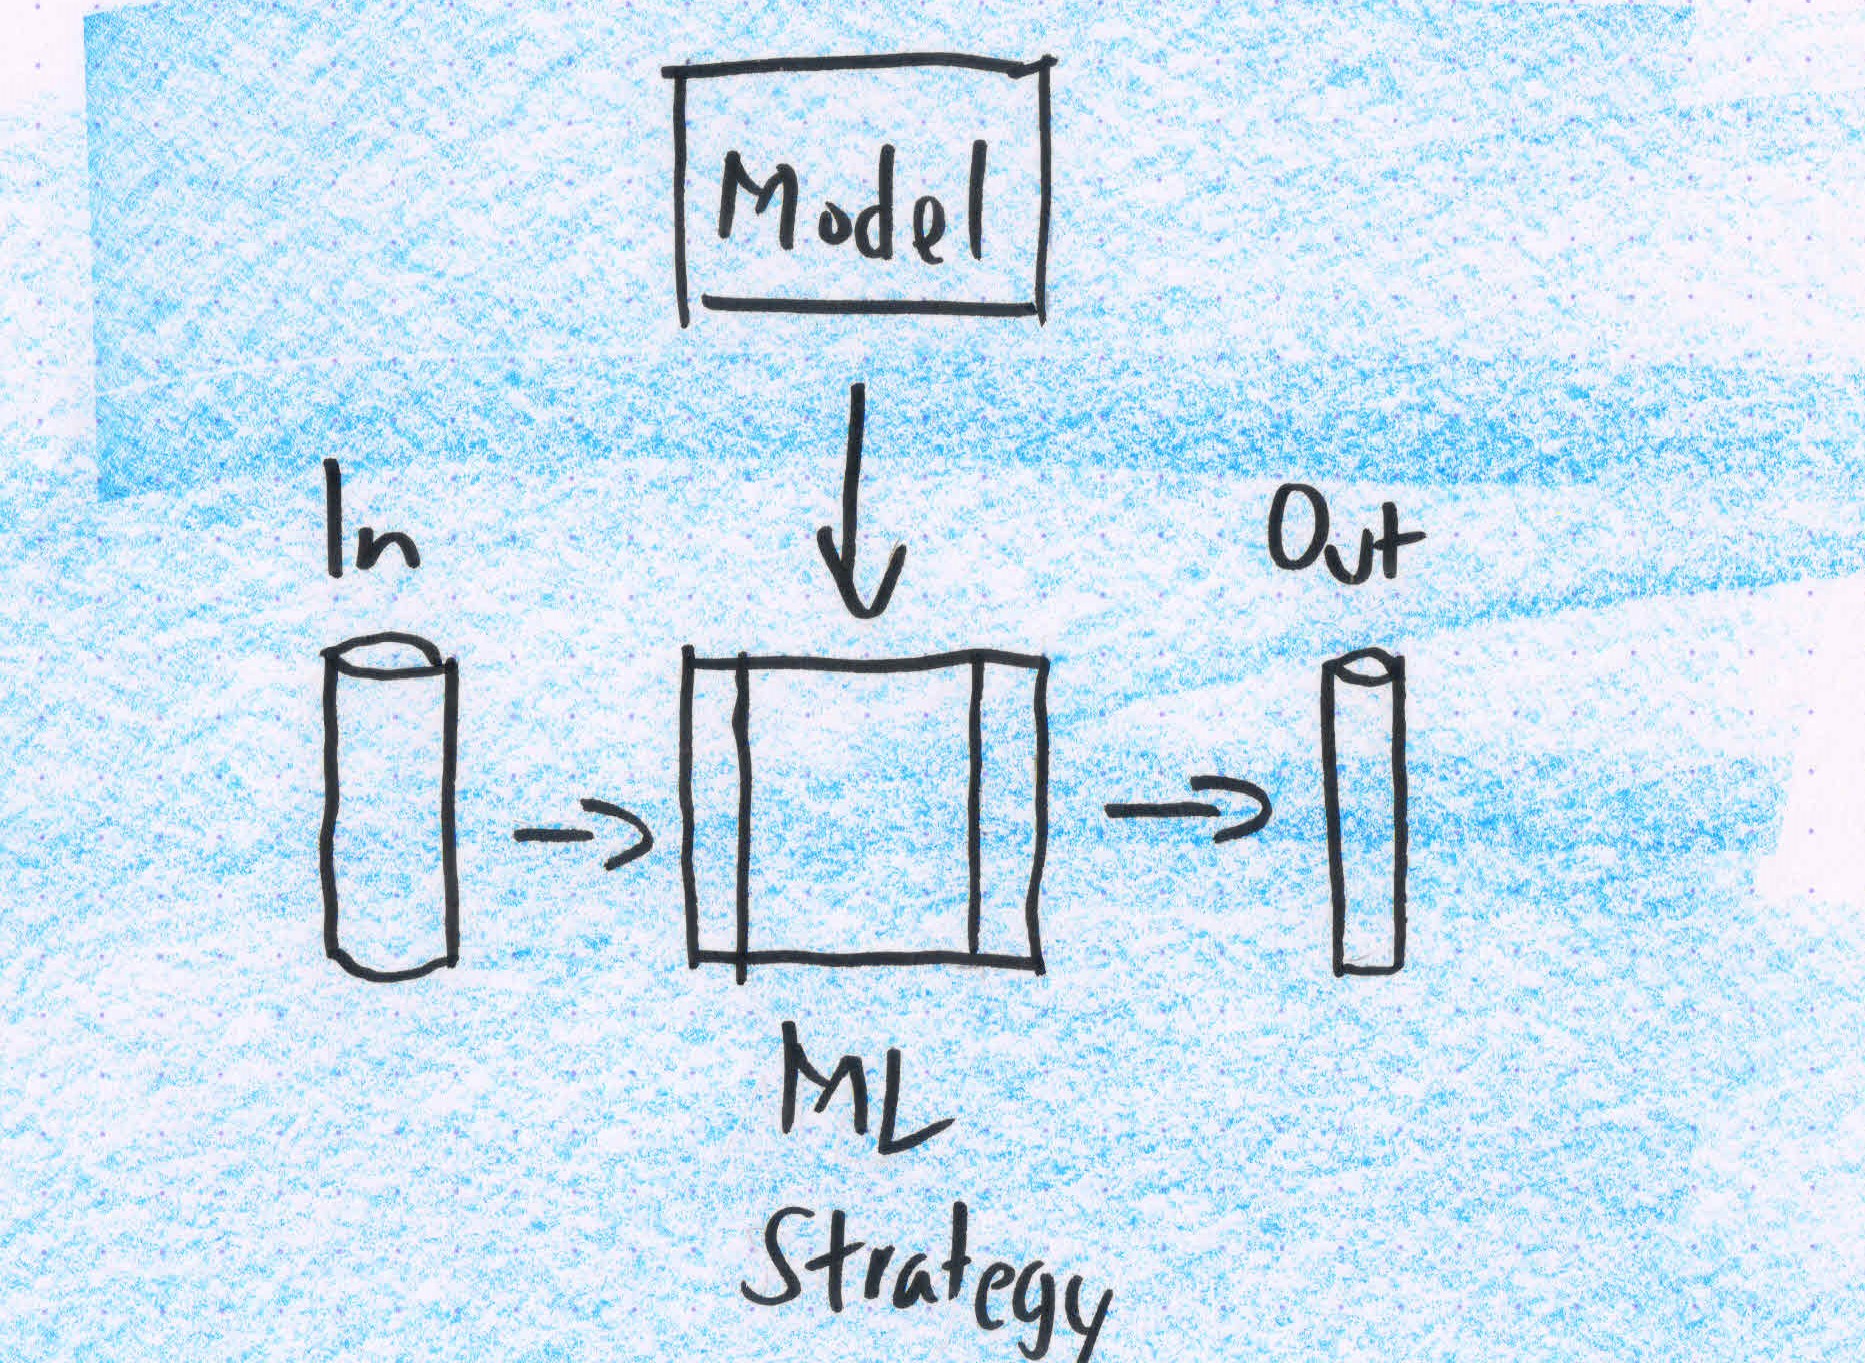 Model
In
Out
ML
Strategy